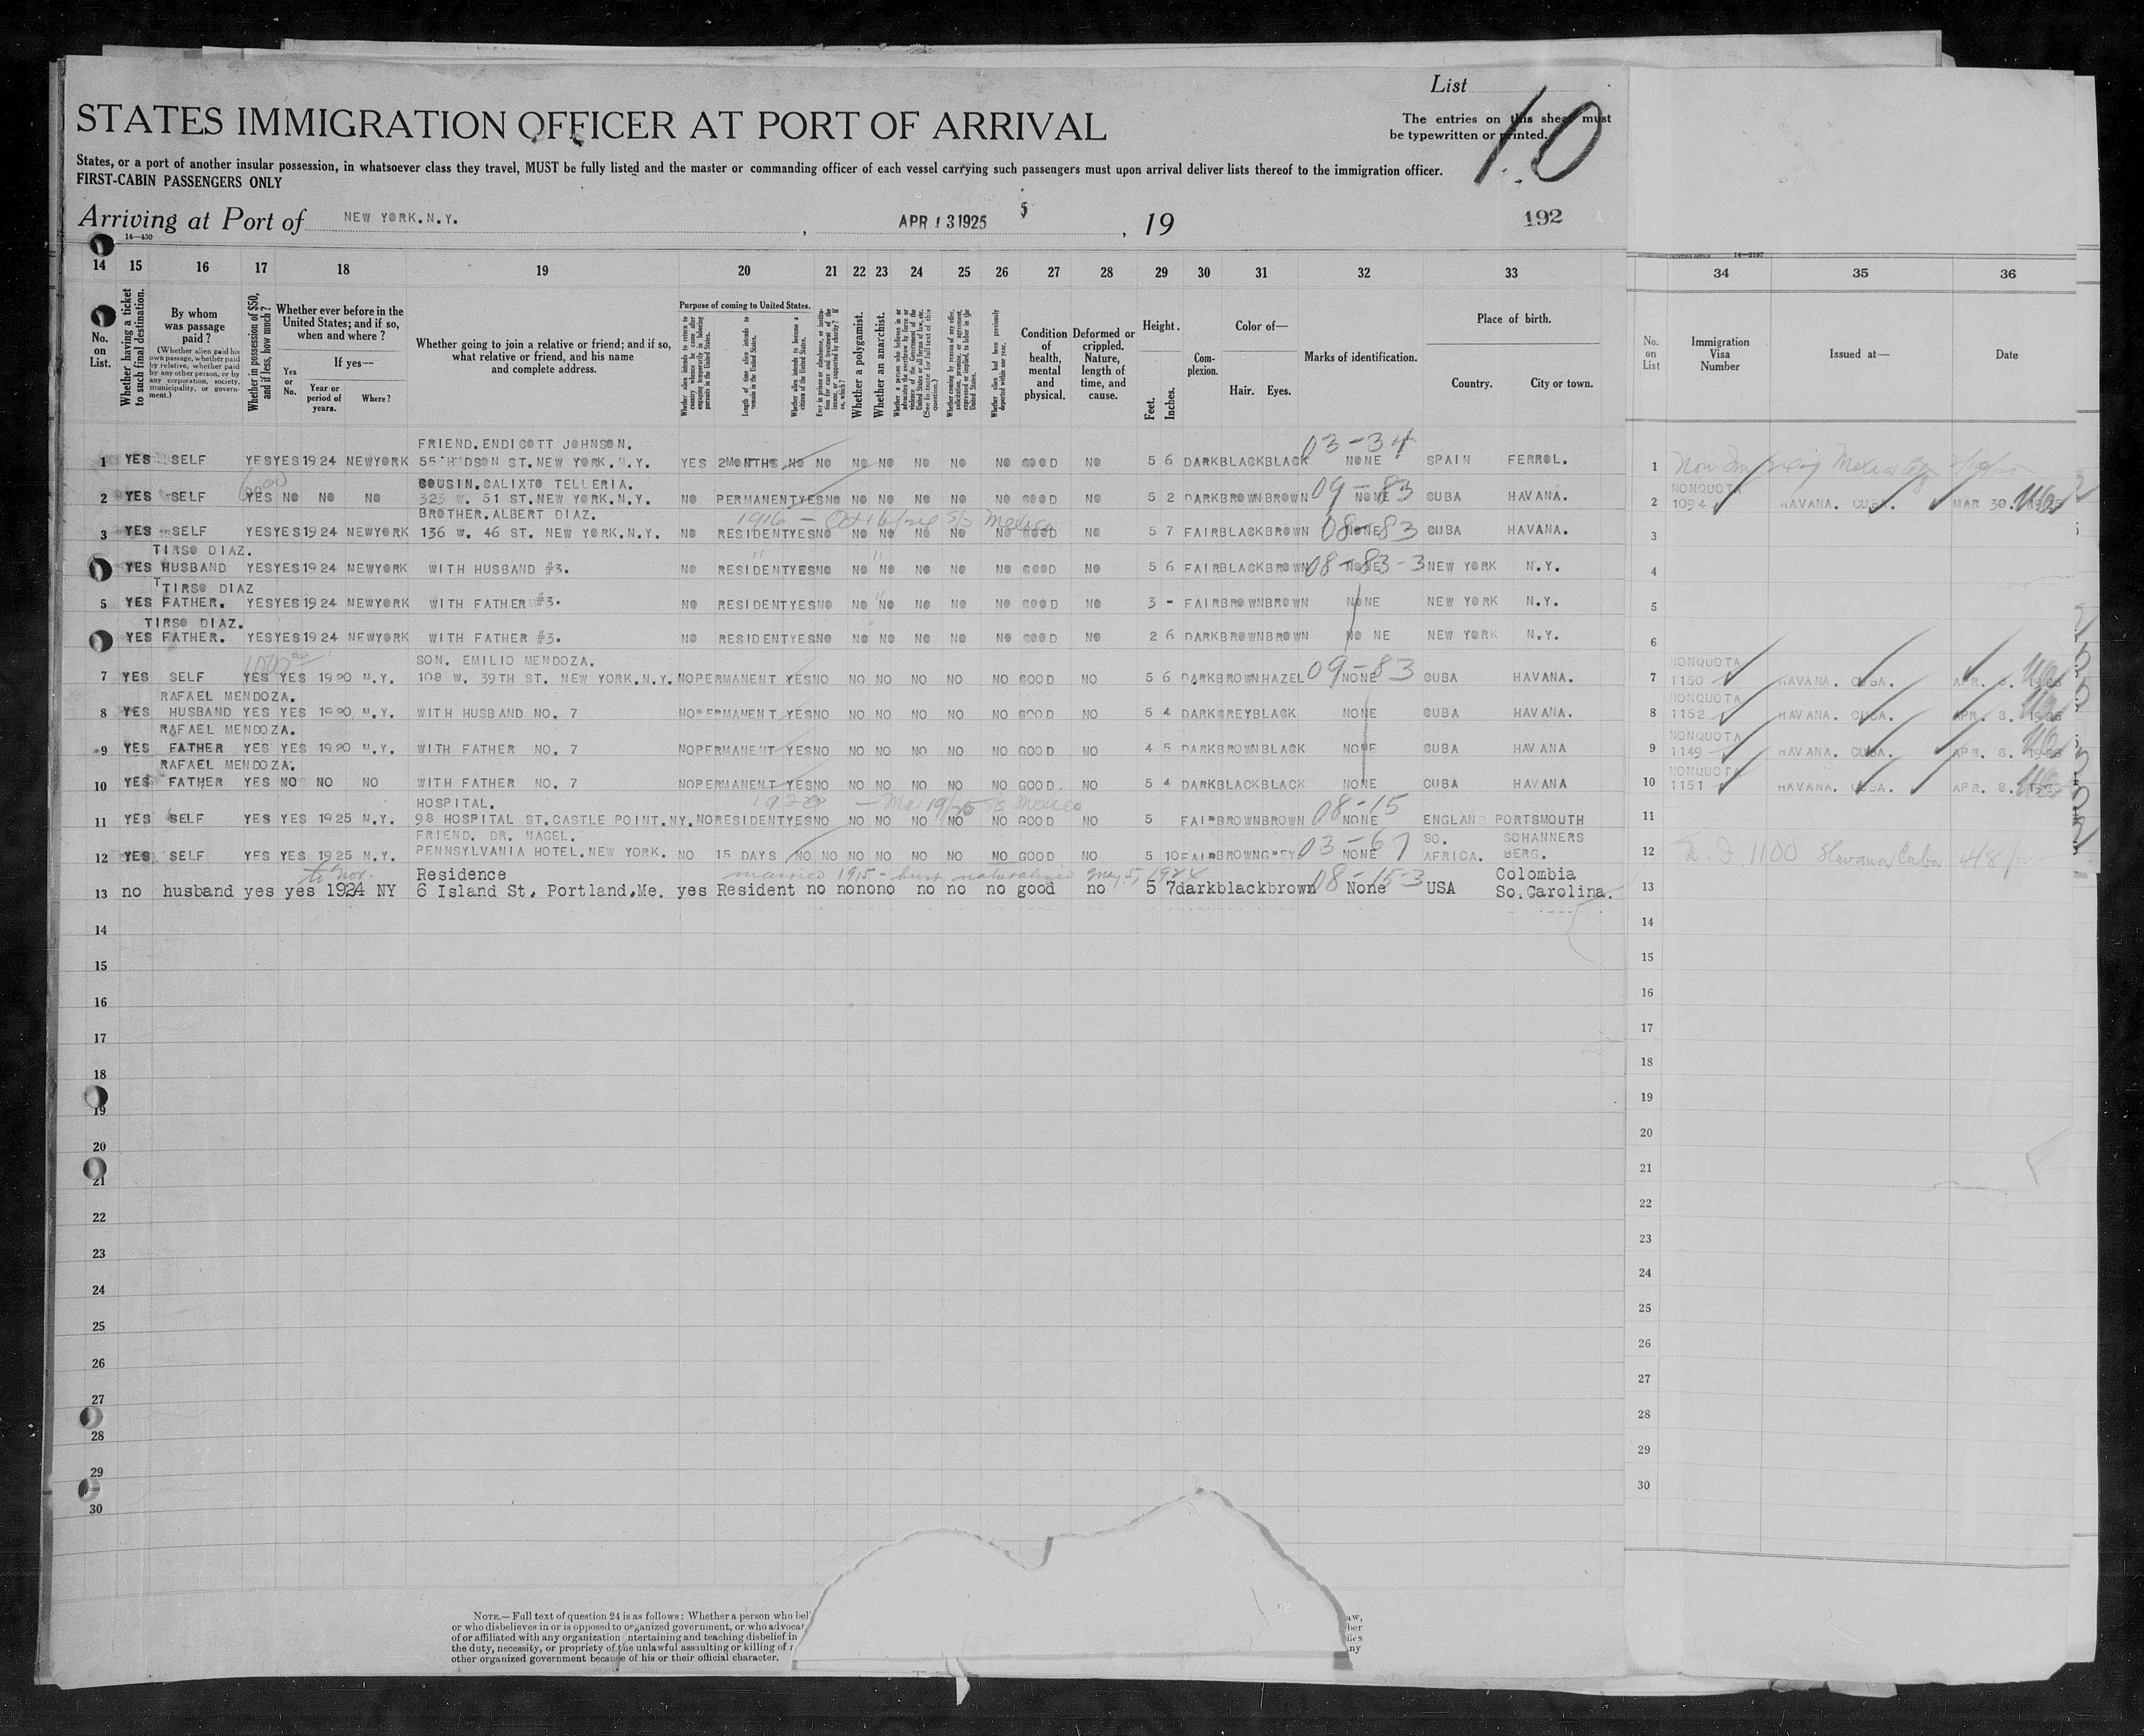 List
STATES IMMIGRATION OFFICER AT PORT OF ARRIVAL
10
The entries on this sheet must
be typewritten or printed.
States, or a port of another insular possession, in whatsoever class they travel, MUST be fully listed and the master or commanding officer of each vessel carrying such passengers must upon arrival deliver lists thereof to the immigration officer.
FIRST-CABIN PASSENGERS ONLY
Arriving at Port of NEW YORK.N.Y. , APR 13 1925 5 , 19 192
14—430
14 15 16 17 18 19 20 21 22 23 24 25 26 27 28 29 30 31 32 33 34 35 36
No. on List.
Whether having a ticket to such final destination.
By whom was passage paid?
(Whether alien paid his own passage, whether paid by relative, whether paid by any other person, or by any corporation, society, municipality, or government.)
Whether in possession of $50, and if less, how much?
Whether ever before in the United States; and if so, when and where?
If yes—
Yes or No.
Year or period of years.
Where?
Whether going to join a relative or friend; and if so, what relative or friend, and his name and complete address.
Purpose of coming to United States.
Whether alien intends to return to country whence he came after engaging temporarily in laboring pursuits in the United States.
Length of time alien intends to remain in the United States.
Whether alien intends to become a citizen of the United States.
Whether a polygamist.
Whether an anarchist.
Whether alien had been previously deported within one year.
Condition of health, mental and physical.
Deformed or crippled. Nature, length of time, and cause.
Height.
Feet. Inches.
Complexion.
Color of—
Hair. Eyes.
Marks of identification.
Place of birth.
Country. City or town.
No. on List
Immigration Visa Number
Issued at—
Date
FRIEND.ENDICOTT JOHNSON. 03-34
1 YES SELF YES YES 1924 NEWYORK 55 HUDSON ST.NEW YORK.N.Y. YES 2MONTHS NO NO NO NO NO NO NO GOOD NO 5 6 DARK BLACK BLACK NONE SPAIN FERROL. 1
COUSIN.CALIXTO TELLERIA. 09-83 NONQUOTA
2 YES SELF YES NO NO NO 323 W. 51 ST.NEW YORK.N.Y. NO PERMANENT YES NO NO NO NO NO NO GOOD NO 5 2 DARK BROWN BROWN NONE CUBA HAVANA. 2 1094 HAVANA. CUBA. MAR 30.
BROTHER.ALBERT DIAZ. 1916 08-83
3 YES SELF YES YES 1924 NEWYORK 136 W. 46 ST. NEW YORK.N.Y. NO RESIDENT YES NO NO NO NO NO NO GOOD NO 5 7 FAIR BLACK BROWN NONE CUBA HAVANA. 3
TIRSO DIAZ. 08-83-3
YES HUSBAND YES YES 1924 NEWYORK WITH HUSBAND #3. NO RESIDENT YES NO NO NO NO NO NO GOOD NO 5 6 FAIR BLACK BROWN NONE NEW YORK N.Y. 4
TIRSO DIAZ
5 YES FATHER. YES YES 1924 NEWYORK WITH FATHER #3. NO RESIDENT YES NO NO NO NO NO NO GOOD NO 3 - FAIR BROWN BROWN NONE NEW YORK N.Y. 5
TIRSO DIAZ.
YES FATHER. YES YES 1924 NEWYORK WITH FATHER #3. NO RESIDENT YES NO NO NO NO NO NO GOOD NO 2 6 DARK BROWN BROWN NO NE NEW YORK N.Y. 6
SON. EMILIO MENDOZA. 09-83 NONQUOTA
7 YES SELF YES YES 1920 N.Y. 108 W. 39TH ST. NEW YORK.N.Y. NO PERMANENT YES NO NO NO NO NO NO GOOD NO 5 6 DARK BROWN HAZEL NONE CUBA HAVANA. 7 1150 HAVANA. CUBA. APR. 8.
RAFAEL MENDOZA. NONQUOTA
8 YES HUSBAND YES YES 1920 N.Y. WITH HUSBAND NO. 7 NO PERMANENT YES NO NO NO NO NO NO GOOD NO 5 4 DARK GREY BLACK NONE CUBA HAVANA. 8 1152 HAVANA. CUBA. APR. 8.
RAFAEL MENDOZA. NONQUOTA
9 YES FATHER YES YES 1920 N.Y. WITH FATHER NO. 7 NO PERMANENT YES NO NO NO NO NO NO GOOD NO 4 5 DARK BROWN BLACK NONE CUBA HAVANA 9 1149 HAVANA. CUBA. APR. 8.
RAFAEL MENDOZA. NONQUOTA
10 YES FATHER YES NO NO NO WITH FATHER NO. 7 NO PERMANENT YES NO NO NO NO NO NO GOOD. NO 5 4 DARK BLACK BLACK NONE CUBA HAVANA 10 1151 HAVANA. CUBA. APR. 8.
HOSPITAL. 08-15
11 YES SELF YES YES 1925 N.Y. 98 HOSPITAL ST.CASTLE POINT.NY. NO RESIDENT YES NO NO NO NO NO NO GOOD NO 5 FAIR BROWN BROWN NONE ENGLAND PORTSMOUTH 11
FRIEND. DR. NAGEL. 03-67 SO. SOHANNERS
12 YES SELF YES YES 1925 N.Y. PENNSYLVANIA HOTEL.NEW YORK. NO 15 DAYS NO NO NO NO NO NO NO GOOD NO 5 10 FAIR BROWN GREY NONE AFRICA. BERG. 12 1100 Havana Cuba 4/8/
to Nov. Residence married 1915 - husb. naturalized May 5, 1924 08-15-3 Colombia
13 no husband yes yes 1924 NY 6 Island St. Portland.Me. yes Resident no no no no no no no good no 5 7 dark black brown None USA So.Carolina. 13
14 14
15 15
16 16
17 17
18 18
19 19
20 20
21 21
22 22
23 23
24 24
25 25
26 26
27 27
28 28
29 29
30 30
NOTE.—Full text of question 24 is as follows: Whether a person who
or who disbelieves in or is opposed to organized government, or who
of or affiliated with any organization entertaining and teaching disbelief in
the duty, necessity, or propriety of the unlawful assaulting or killing of
other organized government because of his or their official character.